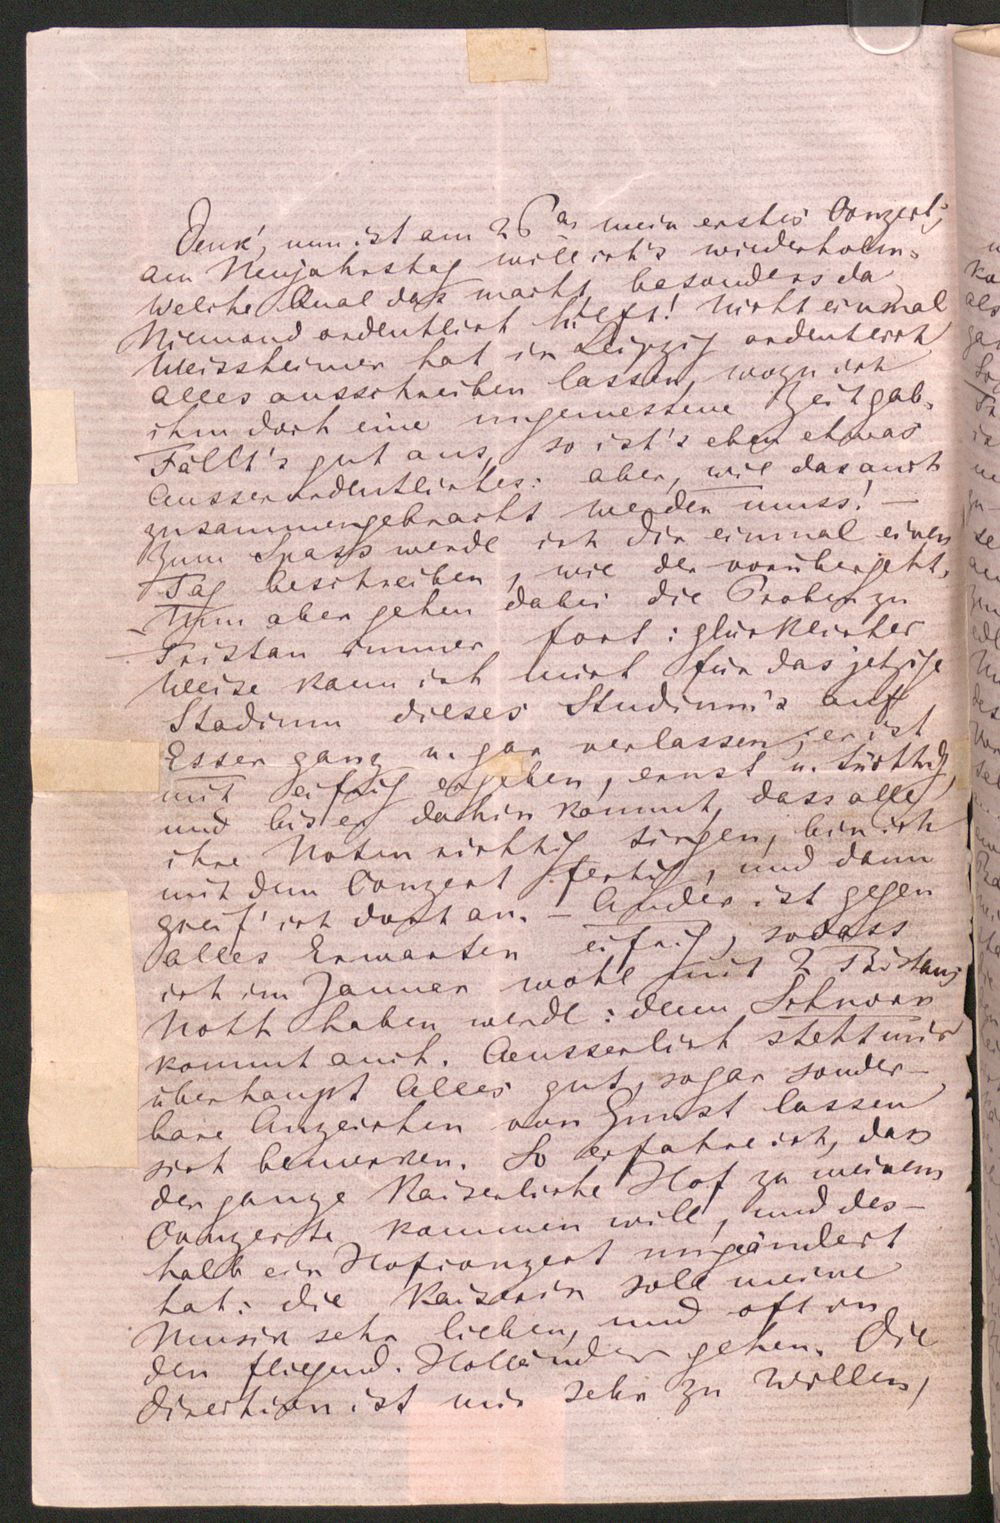 Denk', nun ist am 26ten mein erstes Conzert;
am Neujahrstag will ich's wiederholen.
Welche Qual das macht, besonders da
Niemand ordentlich hilft! Nicht einmal
Weissheimer hat in Leipzig ordentlich
alles ausschreiben lassen, wozu ich
ihm doch eine ungemessene Zeit gab.
Fällt's gut aus, so ist's eben etwas
Ausserordentliches: aber, wie das auch
zusammengebracht werden muss! —
Zum Spass werde ich Dir einmal einen
Tag beschreiben, wie der vorübergeht.
— Nun aber gehen dabei die Proben zu
Tristan immer fort: glücklicher
Weise kann ich mich für das jetzige
Stadium dieses Studium's auf
Esser ganz u. gar verlassen; er ist
mir eifrig ergeben, ernst u. tüchtig,
und bis er dahin kommt, dass alle
ihre Noten richtig singen, bin ich
mit dem Conzert fertig, und dann
greif' ich dort an. — Ander ist gegen
alles Erwarten eifrig, sodass
ich im Januar wohl mit 2 Tristans
Noth haben werde: denn Schnorr
kommt auch. Aeusserlich steht mir
überhaupt Alles gut, sogar sonder-
bare Anzeichen von Gunst lassen
sich bemerken. So erfahre ich, dass
der ganze Kaiserliche Hof zu meinem
Conzerte kommen will, und des-
halb ein Hofconzert umgeändert
hat: die Kaiserin soll meine
Musik sehr lieben, und oft in
den fliegend. Holländer gehen. Die
Direction ist mir sehr zu Willen,